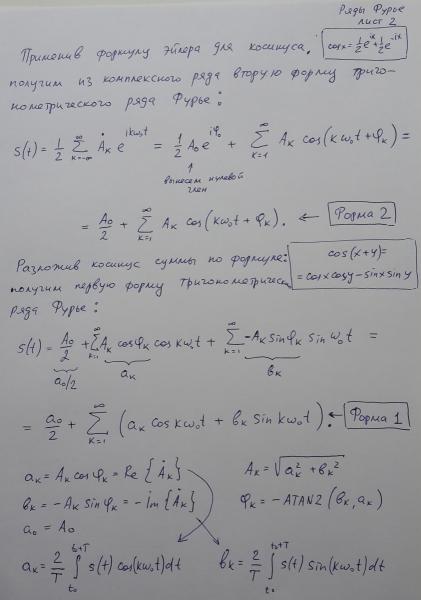 Ряды Фурье
лист 2
Применив формулу эйлера для косинуса, cos x = 1/2 e^{ix} + 1/2 e^{-ix}
получим из комплексного ряда вторую форму триго-
нометрического ряда Фурье:
s(t) = 1/2 ∑_{k=-∞}^{∞} Ȧ_k e^{ikω₀t} = 1/2 A₀e^{iφ₀} + ∑_{k=1}^{∞} A_k cos(kω₀t + φ_k) =
↑
вынесем нулевой
член
= A₀/2 + ∑_{k=1}^{∞} A_k cos(kω₀t + φ_k). ← Форма 2
Разложив косинус суммы по формуле: cos(x+y)=
= cosx cosy − sinx sin y
получим первую форму тригонометрическ
ряда Фурье:
s(t) = A₀/2 + ∑_{k=1}^{∞} A_k cosφ_k cos kω₀t + ∑_{k=1}^{∞} −A_k sinφ_k sin ω₀t =
a₀/2 a_k b_k
= a₀/2 + ∑_{k=1}^{∞} (a_k cos kω₀t + b_k sin kω₀t). ← Форма 1
a_k = A_k cos φ_k = Re {Ȧ_k} A_k = √(a_k² + b_k²)
b_k = −A_k sin φ_k = −im {Ȧ_k} φ_k = −ATAN2 (b_k, a_k)
a₀ = A₀
a_k = 2/T ∫_{t₀}^{t₀+T} s(t) cos(kω₀t)dt b_k = 2/T ∫_{t₀}^{t₀+T} s(t) sin(kω₀t)dt